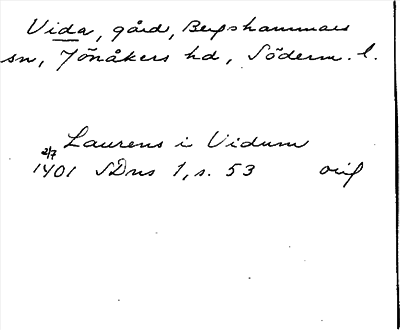 Vida, gård, Bergshammars
sn, Jönåkers hd, Söderm. l.
Laurens i Vidum
2/7
1401 SDns 1, s. 53 orig